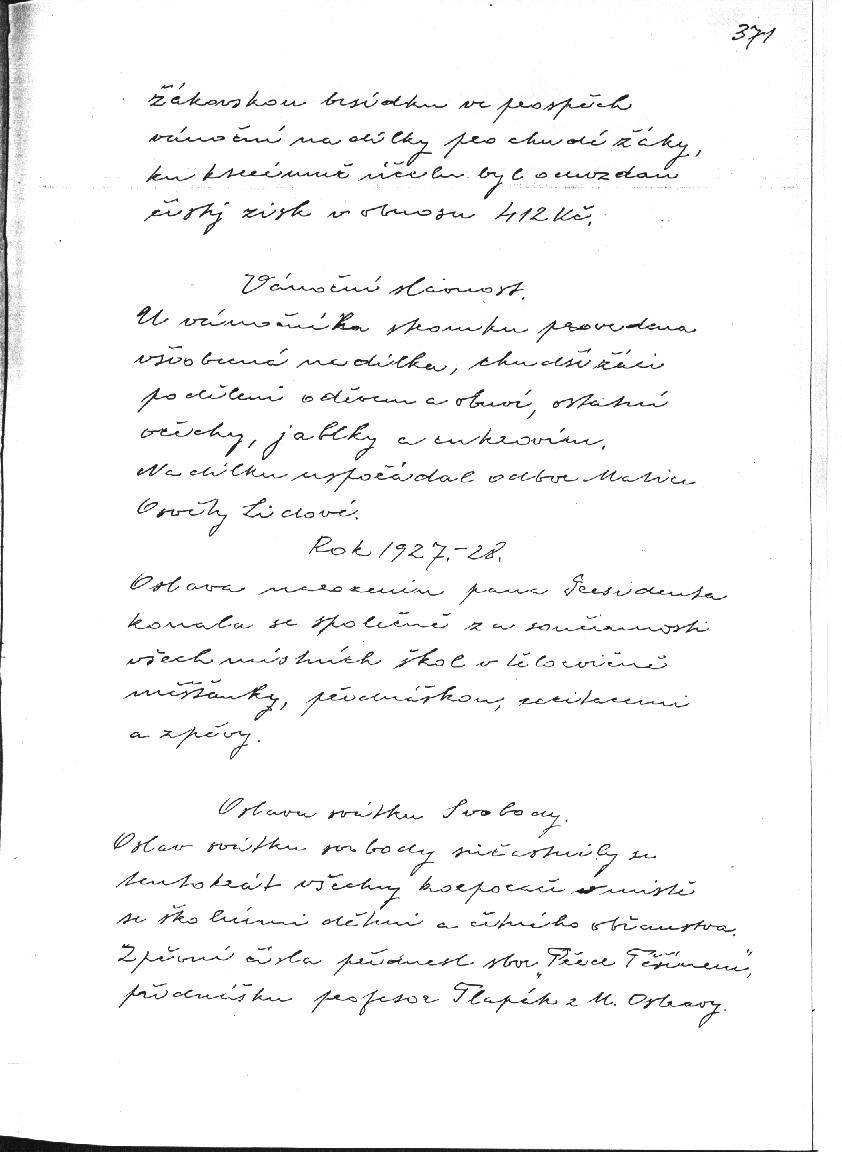 371
žákovskou besídku ve prospěch
vánoční nadílky pro chudé žáky,
ku kterémuž účelu byl odevzdán
čistý zisk v obnosu 412 Kč.
Vánoční slavnost.
U vánočního stromku provedena
všeobecná nadílka, chudší žáci
poděleni oděvem a obuví, ostatní
ořechy, jablky a cukrovím.
Nadílku uspořádal odbor Matice
Osvěty Lidové.
Rok 1927.-28.
Oslava narozenin pana Presidenta
konala se společně za součinnosti
všech místních škol v tělocvičně
měšťanky, přednáškou, recitacemi
a zpěvy.
Oslava svátku Svobody.
Oslav svátku svobody súčastnily se
tentokrát všechny korporace v místě
se školními dětmi a četného občanstva.
Zpěvní čísla přednesl sbor "Pěvců Těšínem",
přednášku profesor Tlapák z M. Ostravy.